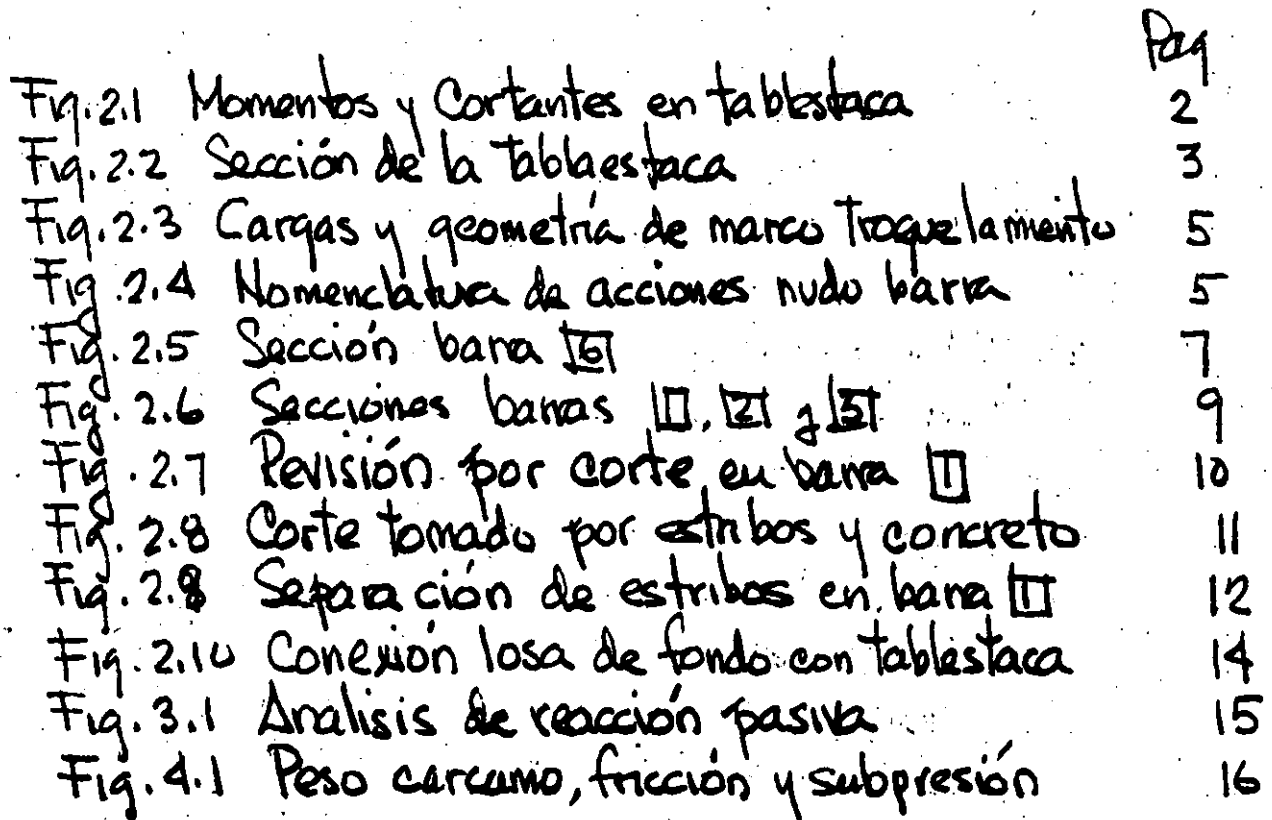 Pag
Fig. 2.1 Momentos y Cortantes en tablestaca 2
Fig. 2.2 Sección de la Tablaestaca 3
Fig. 2.3 Cargas y geometría de marco Troquelamiento 5
Fig. 2.4 Nomenclatura de acciones nudo barra 5
Fig. 2.5 Sección barra 6 7
Fig. 2.6 Secciones barras 1, 2 y 5 9
Fig. 2.7 Revisión por corte en barra 1 10
Fig. 2.8 Corte tomado por estribos y concreto 11
Fig. 2.9 Separación de estribos en barra 1 12
Fig. 2.10 Conexión losa de fondo con tablestaca 14
Fig. 3.1 Analisis de reacción pasiva 15
Fig. 4.1 Peso carcamo, fricción y subpresión 16